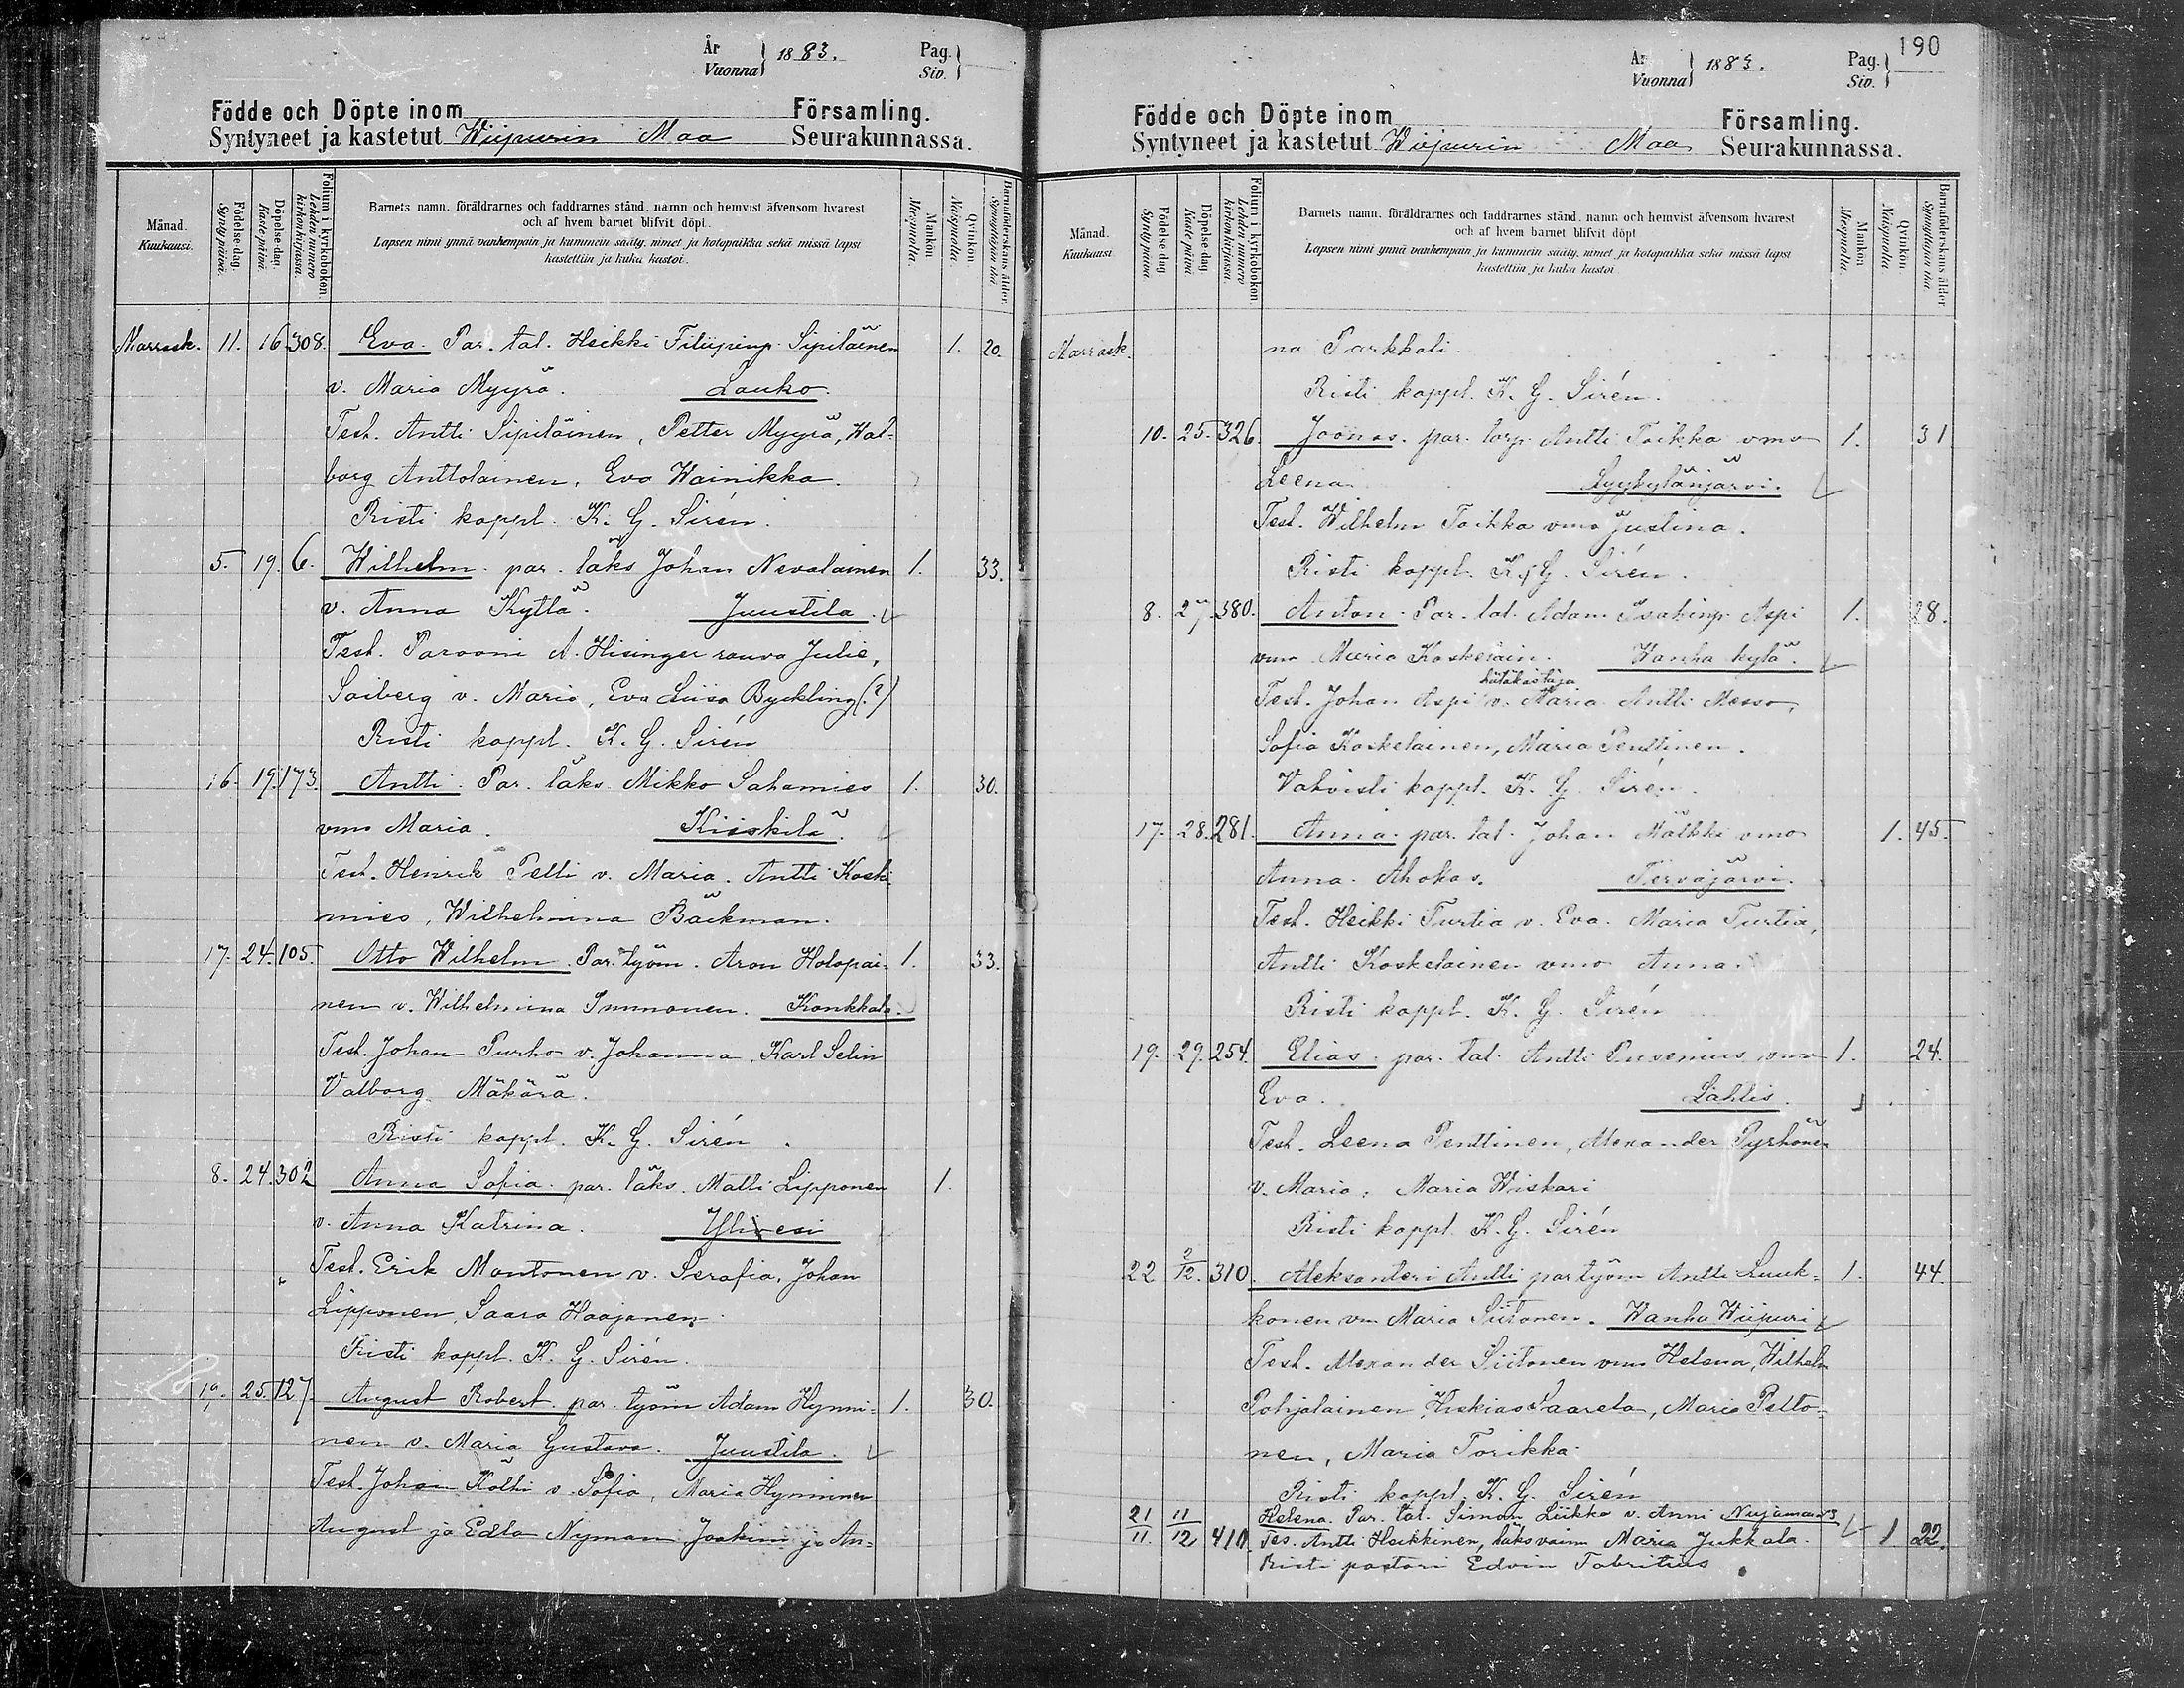 År
Vuonna } 1883.
Pag.
Siv. }
Födde och Döpte inom Församling.
Syntyneet ja kastetut Wiipurin Maa Seurakunnassa.
Månad.
Kuukausi.
Födelse-dag.
Syntypäivä.
Döpelse-dag.
Kaste-päivä.
Folium i kyrkoboken.
Lehden numero
kirkonkirjassa.
Barnets namn, föräldrarnes och faddrarnes stånd, namn och hemvist äfvensom hvarest
och af hvem barnet blifvit döpt.
Lapsen nimi ynnä vanhempain ja kummein sääty, nimet ja kotopaikka sekä missä lapsi
kastettiin ja kuka kastoi.
Mankön.
Miespuolia.
Qvinkön.
Naispuolia.
Barnaföderskans ålder.
Synnyttäjän ikä.
Marrask. 11. 16 308. Eva. Par. tal. Heikki Filiipinp. Sipiläinen 1. 20.
v. Maria Myyrä. Lauko.
Test. Antti Sipiläinen, Petter Myyrä, Wal-
borg Anttolainen, Eva Wainikka.
Risti kappl. K. G. Sirén.
5. 19. 6. Wilhelm. par. läks Johan Nevalainen 1. 33.
v. Anna Kyttä. Juustila.
Test. Parooni A. Hisinger rouva Julie,
Soiberg v. Maria, Eva Liisa Byckling (?)
Risti kappl. K. G. Sirén
16. 19. 173. Antti. Par. läks. Mikko Sahamies 1. 30.
vmo Maria. Kiiskilä.
Test. Henrik Pelli v. Maria. Antti Koski-
mies, Wilhelmina Bäckman.
17. 24. 105. Otto Wilhelm. Par. työm. Aron Holopai- 1. 33.
nen v. Wilhelmina Immonen. Konkkala.
Test. Johan Purho v. Johanna, Karl Selin
Valborg Mäkärä.
Risti kappl. K. G. Sirén.
8. 24. 302 Anna Sofia. par. läks. Matti Lipponen 1.
v. Anna Katrina. Ylivesi
Test. Erik Montonen v. Serafia, Johan
Lipponen, Saara Haajanen.
Risti kappl. K. G. Sirén.
19. 25. 127. August Robert. par. työm Adam Hynni- 1. 30.
nen v. Maria Gustava. Juustila.
Test. Johan Kälhi v. Sofia, Maria Hynninen
August ja Edla Nyman Joakim ja An-
190
År
Vuonna } 1883.
Pag.
Siv. }
Födde och Döpte inom Församling.
Syntyneet ja kastetut Wiipurin Maa Seurakunnassa.
Månad.
Kuukausi
Födelse-dag
Syntypäivä.
Döpelse-dag
Kaste-päivä.
Folium i kyrkoboken
Lehden numero
kirkonkirjassa.
Barnets namn, föräldrarnes och faddrarnes stånd, namn och hemvist äfvensom hvarest
och af hvem barnet blifvit döpt
Lapsen nimi ynnä vanhempain ja kummein sääty, nimet ja kotopaikka sekä missä lapsi
kastettiin ja kuka kastoi
Mankön
Miespuolia.
Qvinkön
Naispuolia.
Barnaföderskans ålder
Synnyttäjän ikä.
Marrask. na Parkkali.
Risti kappl. K. G. Sirén.
10. 25. 326. Joonas. par. torp. Antti Toikka vmo 1. 31
Leena. Lyykylänjärvi.
Test. Wilhelm Toikka vmo Justina.
Risti kappl. K. G. Sirén.
8. 27. 380. Anton. Par. tal. Adam Isakinp. Aspi 1. 28.
vmo Maria Koskelain. Wanha kylä.
hätäkastaja
Test. Johan Aspi v. Maria Antti Messo,
Sofia Koskelainen, Maria Penttinen.
Vahvisti kappl. K. G. Sirén.
17. 28. 281. Anna. par. tal. Johan Mälkki vmo 1. 45.
Anna Ahokas. Tervajärvi.
Test. Heikki Turtia v. Eva. Maria Turtia,
Antti Koskelainen vmo Anna.
Risti kappl. K. G. Sirén
19. 29. 254. Elias. par. tal. Antti Pusenius vmo 1. 24.
Eva. Lahlis.
Test. Leena Penttinen, Alexander Pyrhönen
v. Maria, Maria Wiskari
Risti kappl. K. G. Sirén
22 2/12. 310. Aleksanteri Antti par. työm Antti Luuk- 1. 44.
konen vm Maria Siitonen. Wanha Wiipuri
Test. Alexander Siitonen vmo Helena, Wilhelm
Pohjalainen, Hiskias Saarela, Maria Pelto-
nen, Maria Torikka.
Risti kappl. K. G. Sirén
21/11. 11/12 410. Helena. Par. tal. Simon Liikka v. Anni Nuijamaa 1 22.
Tes. Antti Heikkinen, läks vaimo Maria Jukkala.
Risti pastori Edvin Fabritius